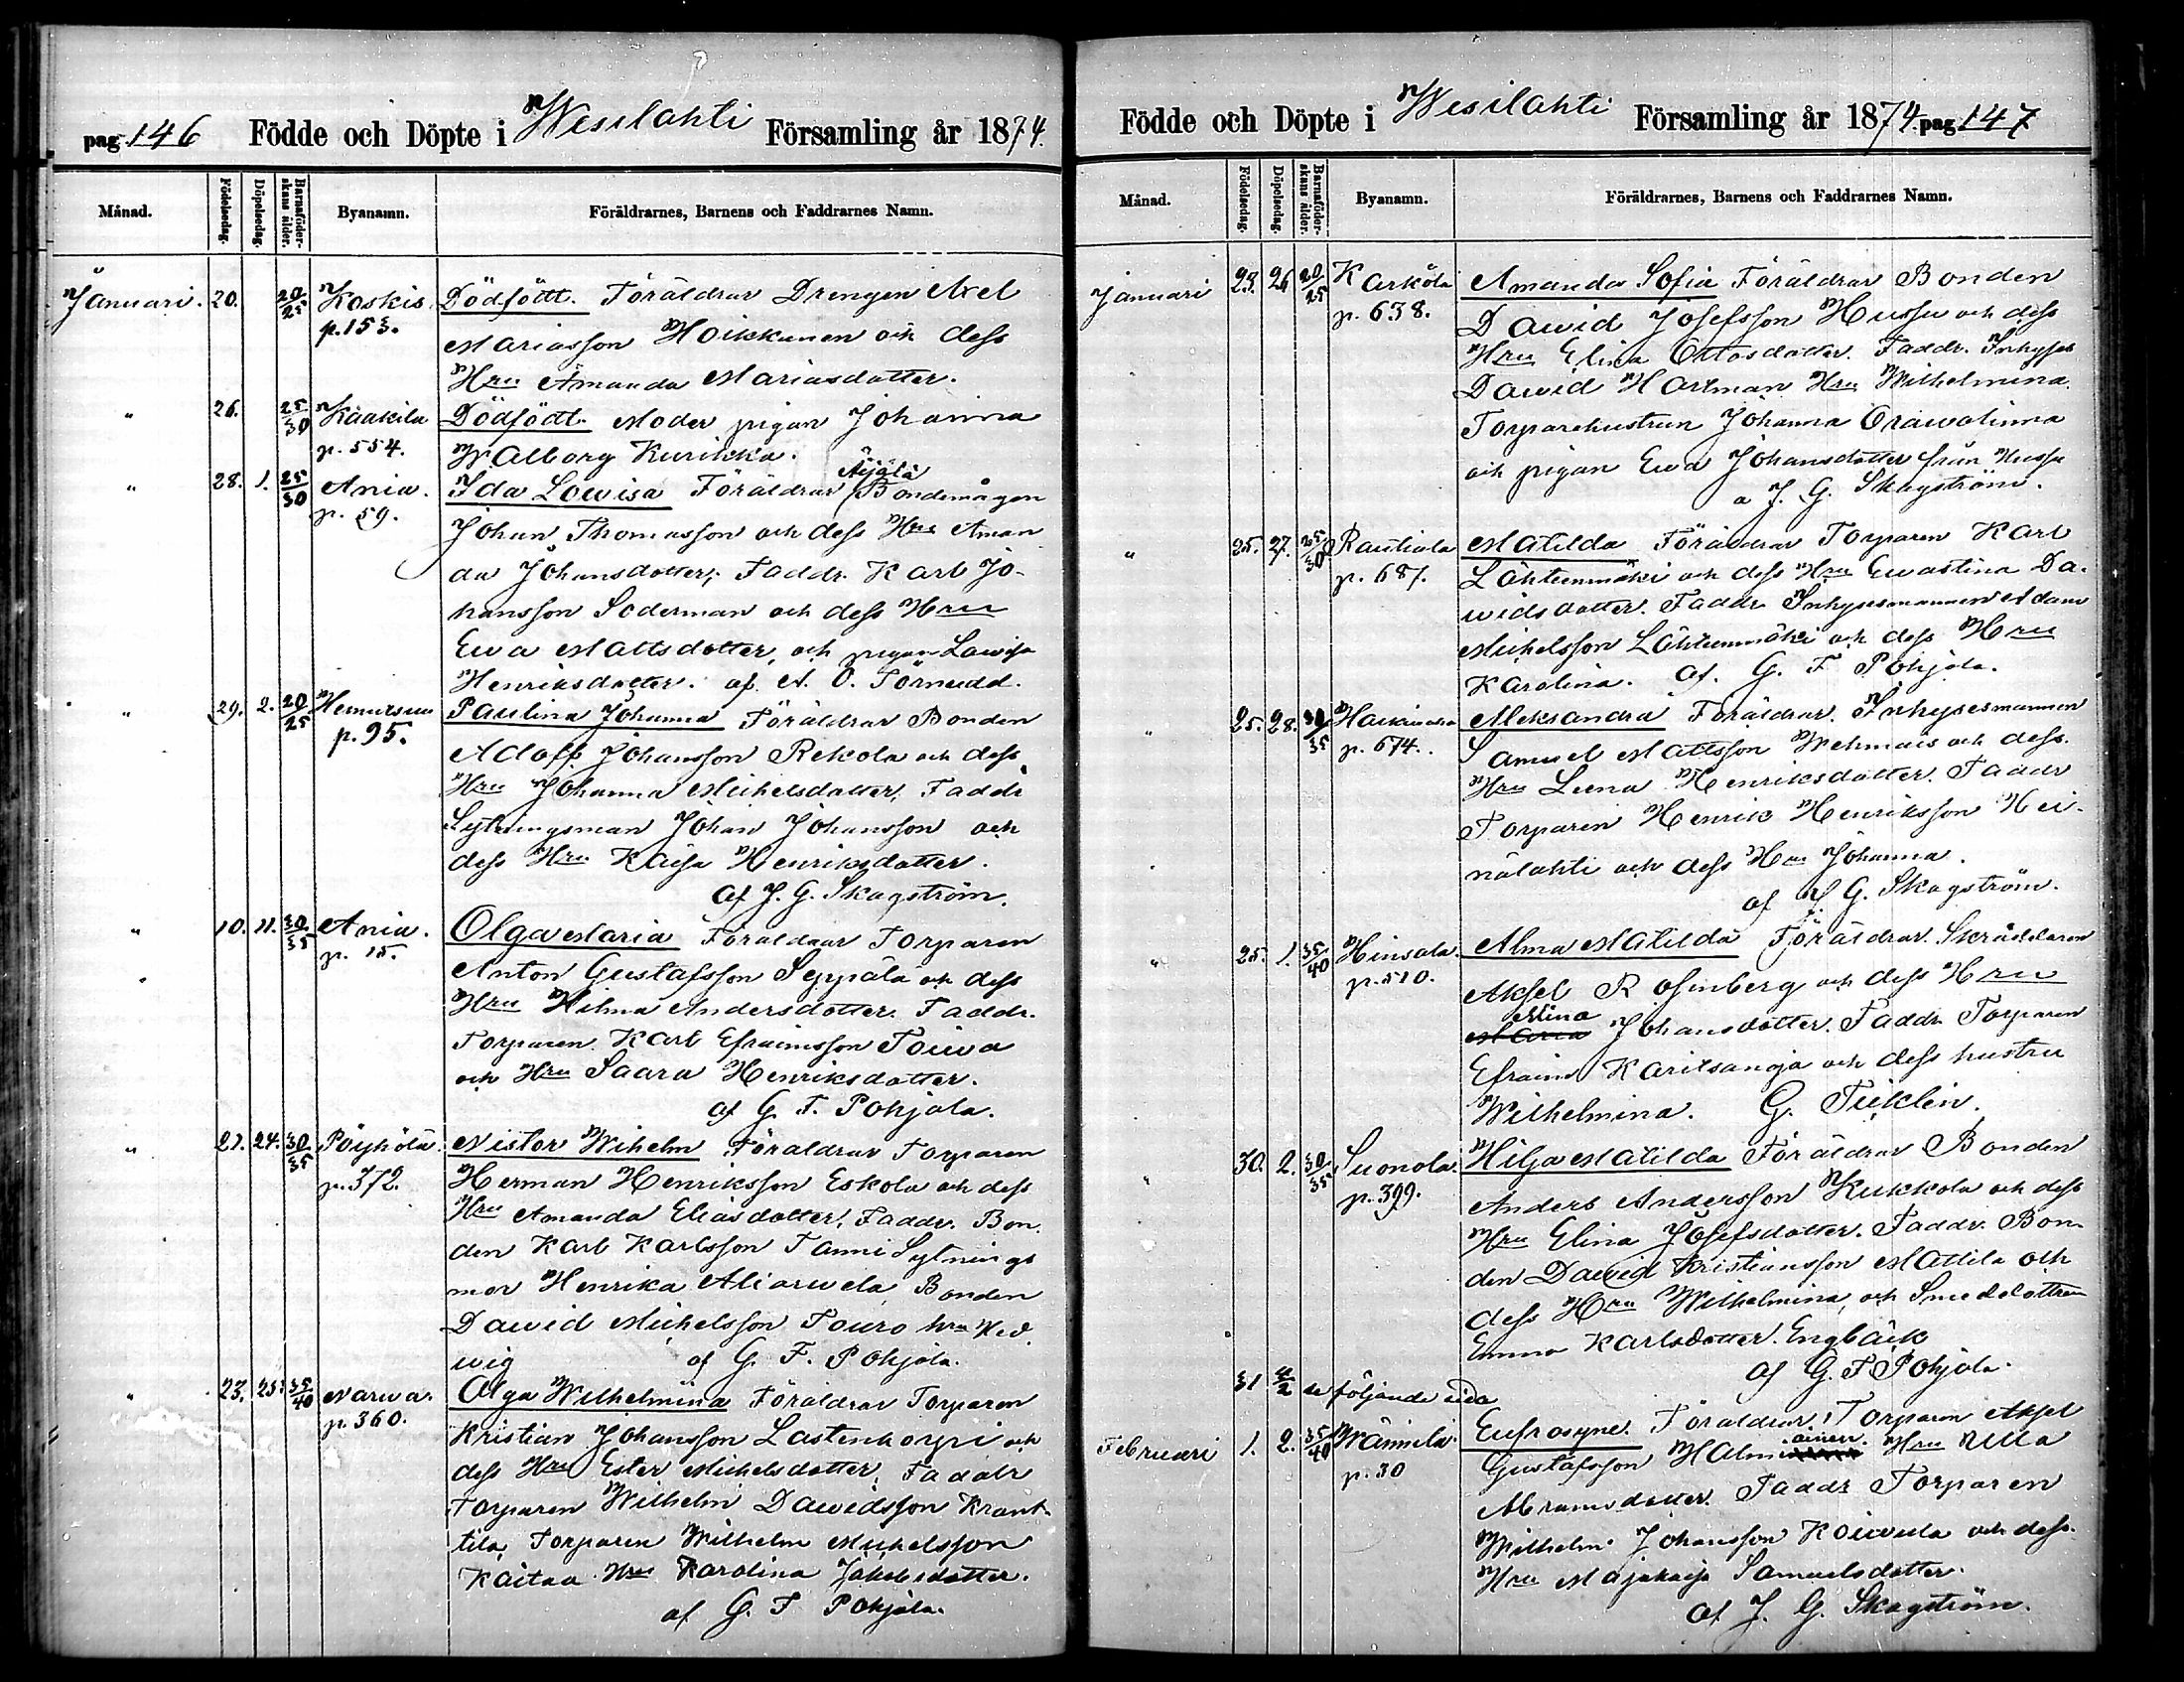 pag. 146 Födde och Döpte i Wesilahti Församling år 1874.
Månad. Födelsedag. Döpelsedag. Barnaföderskans ålder. Byanamn. Föräldrarnes, Barnens och Faddrarnes Namn.
Januari. 20. 20/25 Koskis Dödfödt. Föräldrar Drengen Axel
p. 153. Mariasson Hoikkanen och dess
Hru Amanda Mariasdotter.
" 26. 25/30 Kaakila Dödfödt. Moder pigan Johanna
p. 554. Walborg Kurikka.
Äijälä
" 28. 1. 25/30 Ania. Ida Lowisa Föräldrar Bondemågen
p. 59. Johan Thomasson och dess Hru Aman
da Johansdotter; Faddr. Karl Jo-
hansson Söderman och dess Hru
Ewa Mattsdotter, och pigan Lowisa
Henriksdotter. af A. O. Törnudd.
" 29. 2. 20/25 Hemmersuu Paulina Johanna Föräldrar Bonden
p. 95. Adolf Johansson Rekola och dess
Hru Johanna Michelsdotter; Faddr
Sytningsman Johan Johansson och
dess Hru Kaisa Henriksdotter.
af J. G. Skagström.
" 10. 11. 30/35 Ania. Olga Maria Föräldrar Torparen
p. 15. Anton Gustafsson Seppälä och dess
Hru Hilma Andersdotter. Faddr.
Torparen Karl Efraimsson Toiwa
och Hru Saara Henriksdotter.
af G. F. Pohjala.
" 21. 24. 30/35 Pöyhölä. Nistor Wihelm Föräldrar Torparen
p. 372. Herman Henriksson Eskola och dess
Hru Amanda Eliasdotter, Faddr. Bon
den Karl Karlsson Tanni Sytnings
mor Henrika Aliarwela Bonden
Dawid Michelsson Touro hru Hed
wig af G. F. Pohjala.
" 23. 25. 35/40 Narwa. Olga Wilhelmina Föräldrar Torparen
p. 360. Kristian Johansson Lastenkorpi och
dess Hru Ester Michelsdotter. Faddr
Torparen Wilhelm Dawidsson Krant-
tila, Torparen Wilhelm Michelsson
Kaitaa Hru Karolina Jakobsdotter.
af G. F Pohjala.
Födde och Döpte i Wesilahti Församling år 1874. pag. 147
Månad. Födelsedag. Döpelsedag. Barnaföderskans ålder. Byanamn. Föräldrarnes, Barnens och Faddrarnes Namn.
Januari 23. 26 20/25 Karkola Amanda Sofia Föräldrar Bonden
p. 638. Dawid Josefsson Hussu och dess
Hru Elina Ottosdotter. Faddr. Inhyses
Dawid Hartman Hru Wilhelmina.
Torparehustrun Johanna Orawalinna
och pigan Ewa Johansdotter från Hussu
a J. G. Skagström.
" 25. 27. 25/30 Rautiala Matilda Föräldrar Torparen Karl
p. 687. Lähteenmäki och dess Hru Ewastina Da-
widsdotter. Faddr Inhysesmannen Adam
Michelsson Lähteenmäki och dess Hru
Karolina. af. G. F Pohjala.
" 25. 28. 30/35 Aleksandra Föräldrar. Inhysesmannen
p. 674. Samuel Mattsson Wehmais och dess.
Hru Leena Henriksdotter. Faddr
Torparen Henrik Henriksson Hei-
nälahti och dess Hru Johanna.
af J. G. Skagström.
" 25. 1. 35/40 Hinsala. Alma Matilda Föräldrar. Skräddaren
p. 510. Aksel Rosenberg och dess Hru
Mina
Maria Johansdotter. Faddr. Torparen
Efraim Karitsanoja och dess hustru
Wilhelmina. G. Ticklén.
" 30. 2. 30/35 Suonola. Hilja Matilda Föräldrar Bonden
p. 399. Anders Andersson Kukkola och dess
Hru Elina Josefsdotter. Faddr. Bon-
den Dawid Kristiansson Mattila och
dess Hru Wilhelmina, och Smeddottren
Emma Karlsdotter Engbäck
af G. F Pohjala.
31 2/2 se följande sida
Februari 1. 2. 35/40 Wännilä. Eufrosyne. Föräldrar: Torparen Aksel
p. 30 Gustafsson Halminainen. Hru Ulla
Abramsdotter. Faddr Torparen
Wilhelm Johansson Koiwula och dess.
Hru Majakaisa Samuelsdotter.
af J. G. Skagström.